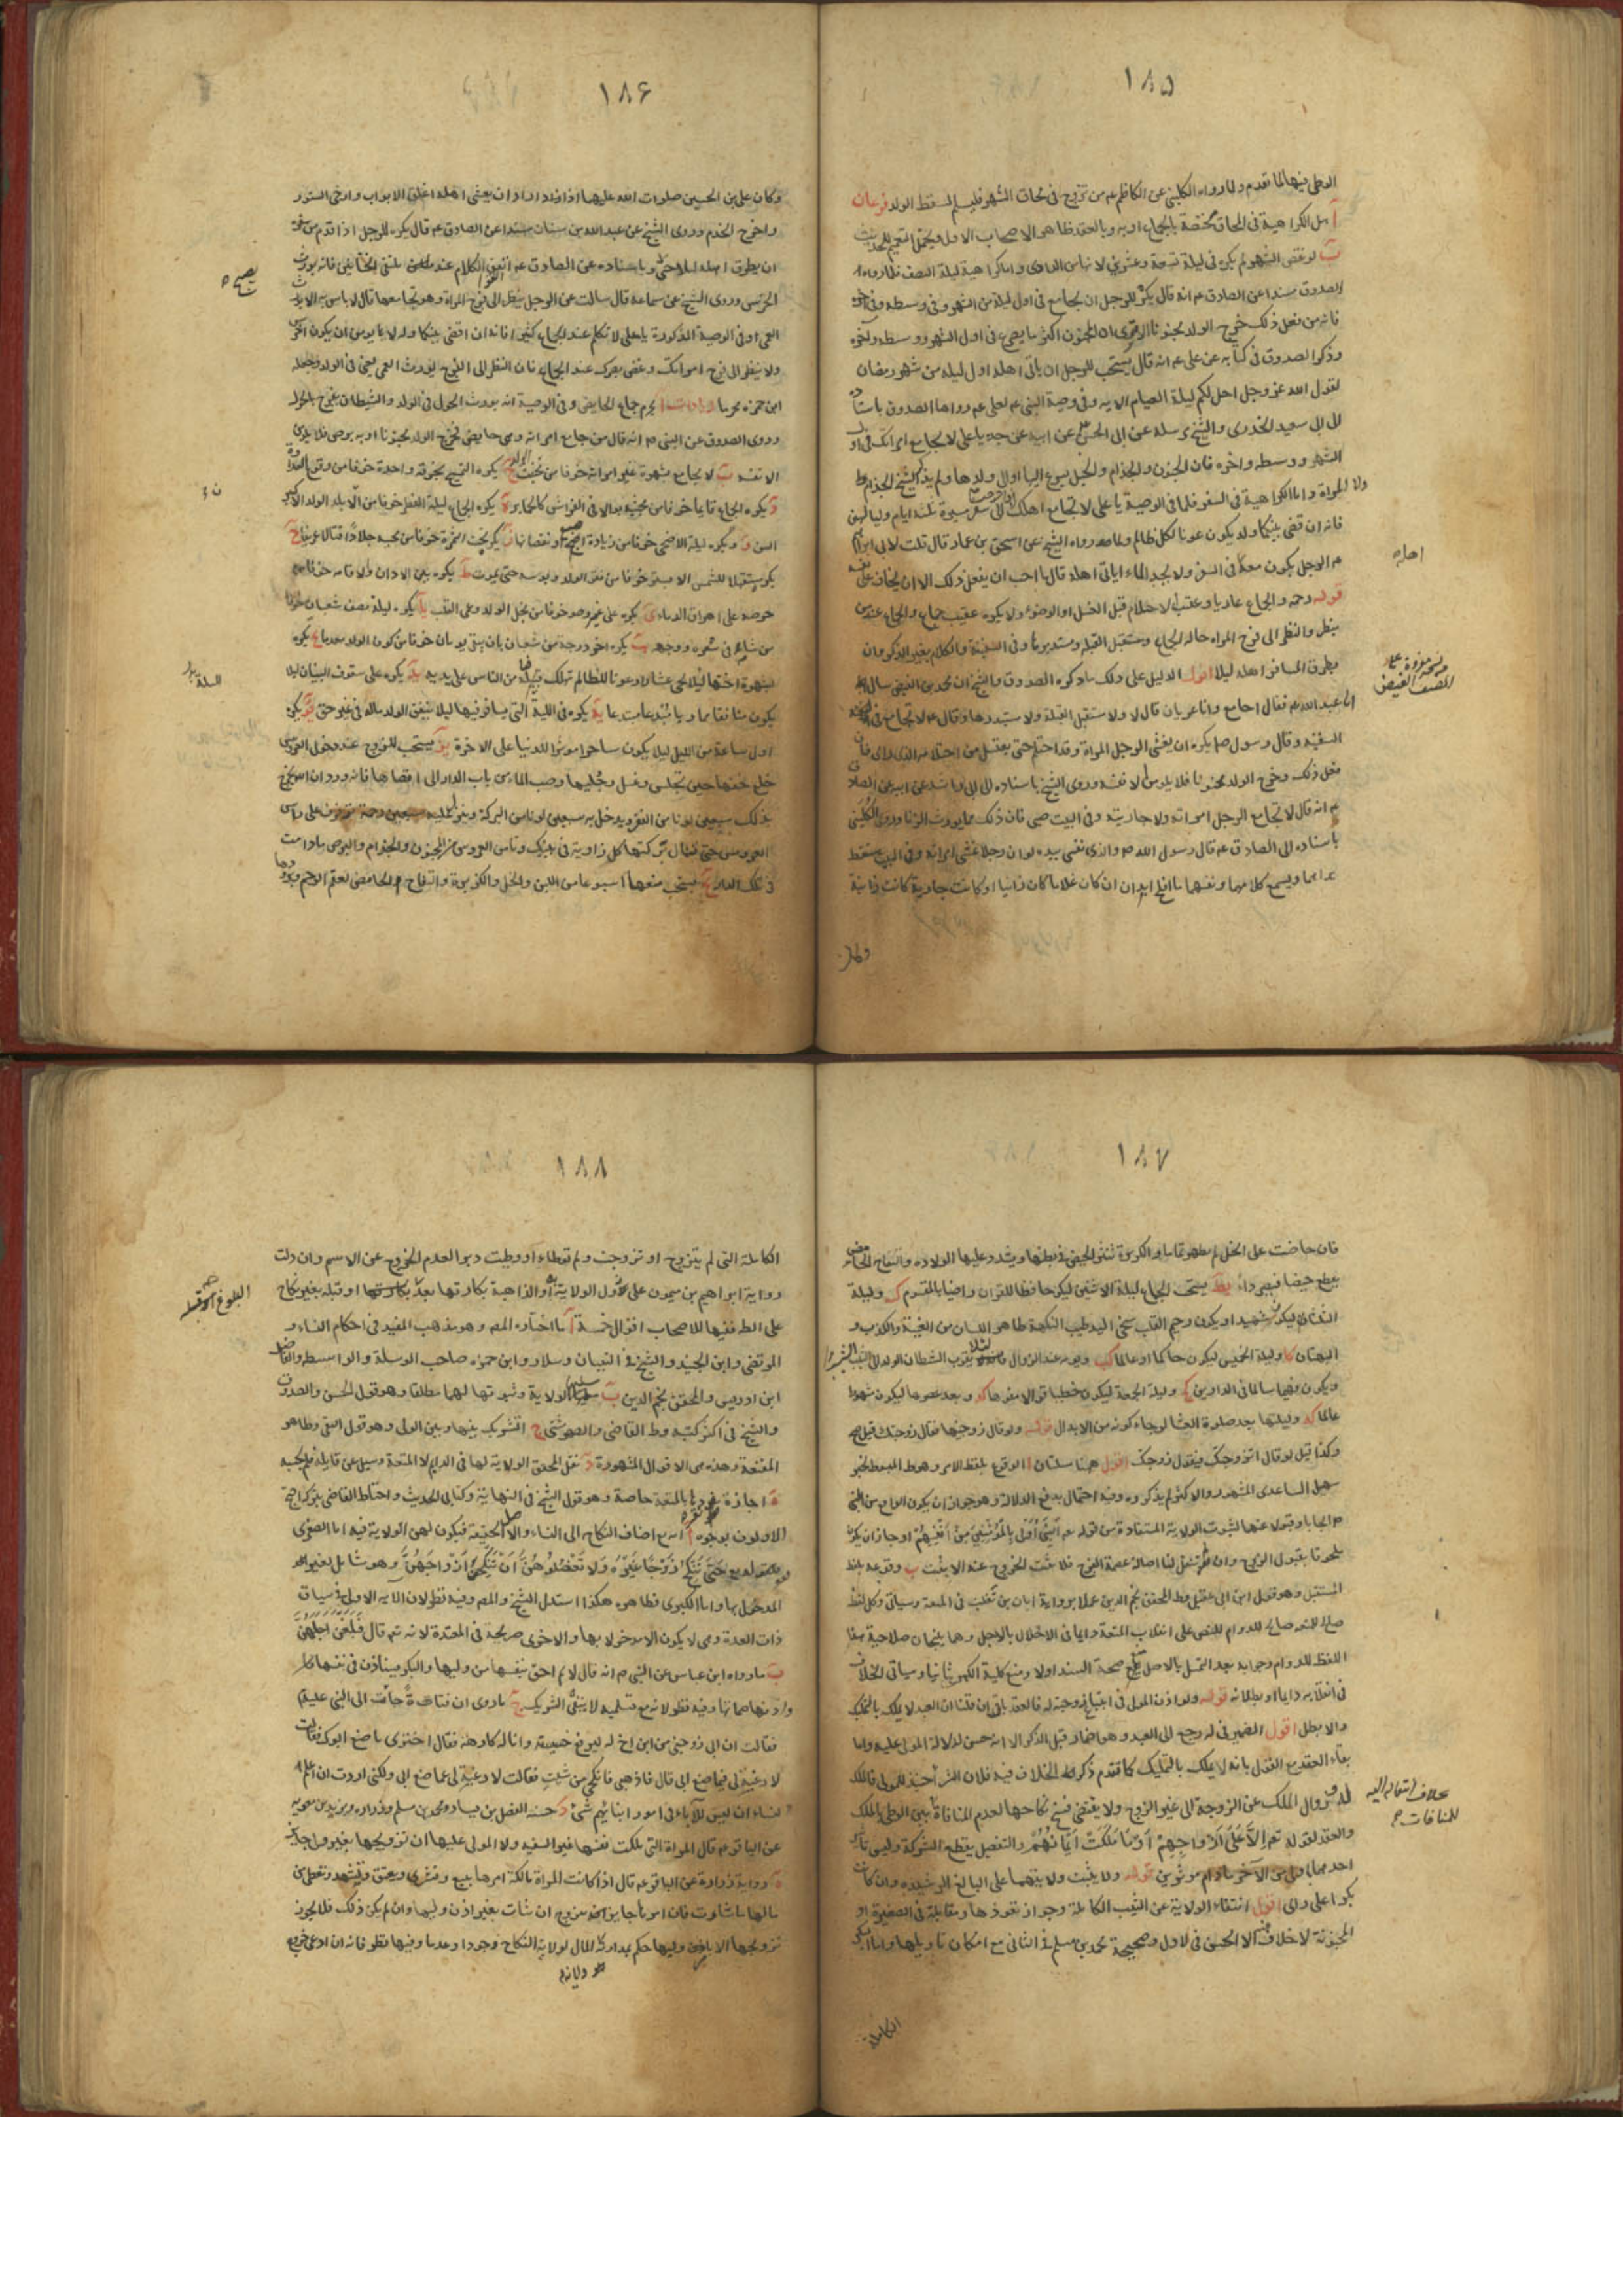 ١٨٥
الوطى فيها لما تقدم ولما رواه الكلينى عن الكاظم عم من تزوج فى محاق الشهر فليسلم لسقط الولد فرعان
آ هل الكراهية فى المحاق مختصة بالجماع او به وبالعقد ظاهر الاصحاب الاول ويحتمل التعميم للحديث
ب لو نقص الشهر لم يكره فى ليلة تسعة وعشرين لانها من العادى واما كراهية ليلة النصف فلما رواه
الصدوق مسندا عن الصادق عم انه قال يكره للرجل ان يجامع فى اول ليلة من الشهر وفى وسطه وفى آخره
فانه من فعل ذلك خرج الولد مجنونا الا ترى ان المجنون اكثر ما يصرع فى اول الشهر ووسطه وآخره
وذكر الصدوق فى كتابه عن على عم انه قال يستحب للرجل ان ياتى اهله اول ليلة من شهر رمضان
لقول الله عز وجل احل لكم ليلة الصيام الايه وفى وصية النبى عم لعلى عم رواها الصدوق باسناده
الى ابى سعيد الخدرى والشيخ مرسله عن ابى الحسن عن ابيه عن جده يا على لا تجامع امراتك فى اول
الشهر ووسطه واخره فان الجنون والجذام والخبل يسرع اليها والى ولدها ولم يذكر الشيخ الجذام
ولا المراة واما الكراهية فى السفر فلما فى الوصية يا على لا تجامع اهلك اذا خرجت الى سفر مسيرة ثلثة ايام ولياليهن
فانه ان قضى بينكما ولد يكون عونا لكل ظالم ولما رواه الشيخ عن اسحق بن عمار قال قلت لابى ابراهيم
عم الرجل يكون معه اهله فى السفر ولا يجد الماء اياتى اهله قال ما احب ان يفعل ذلك الا ان يخاف على نفسه
قوله رحمه والجماع عاريا وعقيب الاحتلام قبل الغسل او الوضوء ولا يكره عقيب جماع والجماع عند من
ينظر والنظر الى فرج المراه حالة الجماع ومستقبل القبلة ومستدبرها وفى السفينة والكلام بغير الذكر وان
يطرق المسافر اهله ليلا اقول الدليل على ذلك ما ذكره الصدوق والشيخ ان محمد بن الفيض سال
ابا عبد الله عم فقال اجامع وانا عريان قال لا ولا مستقبل القبلة ولا مستدبرها وقال عم لا تجامع فى
السفينه وقال رسول ص يكره ان يغشى الرجل المراة وقد احتلم حتى يغتسل من احتلامه الذى راى فان
فعل ذلك وخرج الولد مجنونا فلا يلومن الا نفسه وروى الشيخ باسناده الى ابى راشد عن ابيه عن الصادق
عم انه قال لا تجامع الرجل امراته ولا جاريته وفى البيت صبى فان ذلك مما يورث الزنا وروى الكلينى
باسناده الى الصادق عم قال رسول الله ص والذى نفسى بيده لو ان رجلا غشى امراته وفى البيت مستيقظ
يراهما ويسمع كلامهما ونفسهما ما افلح ابدا ان كان غلاما كان زانيا او كانت جارية كانت زانية
وكان
اهله
١٨٦
وكان على بن الحسين صلوات الله عليهما اذا اراد ان يغشى اهله اغلق الابواب وارخى الستور
واخرج الخدم وروى الشيخ عن عبد الله بن سنان مسندا عن الصادق عم قال يكره للرجل اذا قدم من سفره
ان يطرق اهله ليلا حتى يصبح وباسناده عن الصادق عم اتقوا الكلام عند ملتقى الختانين فانه يورث
الخرس وروى الشيخ عن سماعة قال سالت عن الرجل ينظر الى فرج المراة وهو يجامعها قال لا باس به الا انه يورث
العمى وفى الوصية المذكورة يا على لا تكلم عند الجماع كثيرا فانه ان اقضى بينكما ولد لا يؤمن ان يكون اخرس
ولا ينظر الى فرج امراتك وغض بصرك عند الجماع فان النظر الى الفرج يورث العمى يعنى فى الولد وجعله
ابن حمزه محرما زيادات آ يحرم جماع الحايض وفى الوصية انه يورث الحول فى الولد والشيطان يفرح بالحول
وروى الصدوق عن النبى ص انه قال من جامع امراته وهى حايض فخرج الولد مجذوما او به برص فلا يلومن
الا نفسه ب لا يجامع بشهوة غير امراته خوفا من تخنث الولد ج يكره التمسح بخرقة واحدة خوفا من وقوع العداوة
د يكره الجماع قايما خوفا من مجيئه بوالا فى الفراش كالحمار ه يكره الجماع ليلة الفطر خوفا من ان لا يلد الولد الا كبير
السن و ويكره ليلة الاضحى خوفا من زيادة اصبع او نقصانها ز يكره تحت الشجرة خوفا من مجيئه جلادا قتالا عريفا ح
يكره مستقبلا للشمس الا بستر خوفا من فقر الولد وبوسه حتى يموت ط يكره بين الاذان والاقامه خوفا من
حرصه على اهراق الدماء ى يكره على غير وضوء خوفا من بخل الولد وعمى القلب يا يكره ليلة نصف شعبان خوفا
من شامة فى شعره ووجهه يب يكره اخر درجة من شعبان بان يبقى يومان خوفا من كون الولد معدما يج يكره
بشهوة اختها ليلا يجئ عشارا وعونا للظالم تهلك فيه فيام من الناس على يديه يد يكره على سقوف البنيان ليلا
يكون منافقا مماريا مبتدعا يه يكره فى الليلة التى يسافر فيها ليلا ينفق الولد ماله فى غير حق يو يكره
اول ساعة من الليل ليلا يكون ساحرا موثرا للدنيا على الاخرة يز يستحب للمتزوج عند دخول العروس
خلع خفها حين تجلس وغسل رجليها وصب الماء من باب الدار الى اقصاها فانه ورد ان الله يخرج
بذلك سبعين لونا من الفقر ويدخل به سبعين لونا من البركة وينزل عليه سبعين رحمة ترفرف على راس
العروس حتى تنال بركتها كل زاوية فى بيتك وتامن العروس من الجنون والجذام والبرص مادامت
فى تلك الدار يح يستحب منعها اسبوعا من اللبن والخل والكزبرة والتفاح الحامض لعقم الرحم وبردها
يصبح
١٨٧
فان حاضت على الخل لم تطهر تماما والكزبرة تثير الحيض فى بطنها ويشدد عليها الولادة والتفاح الحامض
يقطع حيضها فيصير داء يط يستحب الجماع ليلة الاثنين ليكون حافظا للقران راضيا بالمقسوم ك وليلة
الثلثاء ليكون شهيدا ويكون رحيم القلب سخى اليد طيب النكهة طاهر اللسان من الغيبة والكذب و
البهتان كا وليلة الخميس ليكون حاكما او عالما كب ويومه عند الزوال لئلا يقرب الشيطان الولد الى الشيب
ويكون فهيما سالما فى الدارين كج وليلة الجمعة ليكون خطيبا قوالا مفوها كد وبعد عصرها ليكون مشهورا
عالما كه وليلتها بعد صلوة العشا لرجاء كونه من الابدال قوله ولو قال زوجنيها فقال زوجتك قيل صح
وكذا قيل لو قال اتزوجك فيقول زوجتك اقول هنا مسئلتان آ الوقوع بلفظ الامر وهو ط المبسوط لخبر
سهل الساعدى المشهور والاكثر لم يذكروه وفيه احتمال يدفع الدلالة وهو جواز ان يكون الواقع من النبى
ص ايجابا وقبولا عنها لثبوت الولاية المستفادة من قوله تعم النبى اولى بالمومنين من انفسهم او جاز ان يكون
ملحوقا بقبول الزوج وان لم ينقل لنا اصالة عصمة الفرج فلا يثبت الخروج عنه الا بثبت ب وقوعه بلفظ
المستقبل وهو قول ابن ابى عقيل وط المحقق نجم الدين عملا برواية ابان بن تغلب فى المتعة وسياتى وكل لفظ
صلح للمتعه صالح للدوام للنص على انقلاب المتعة دايما فى الاخلال بالاجل وهما ينتجان صلاحية هذا
اللفظ للدوام وجوابه بعد التمسك بالاصل منع صحة السند اولا ومنع كلية الكبرى ثانيا وسياتى الخلاف
فى انقلابه دايما او بطلانه قوله ولو اذن المولى فى ابتياع زوجته له فالعقد باق ان قلنا ان العبد لا يملك بالتمليك
والا بطل اقول الضمير فى له يرجع الى العبد وهو اضمار قبل الذكر الا انه حسن لدلالة المولى عليه واما
بقاء العقد مع القول بانه لا يملك بالتمليك كما تقدم ذكره فى الخلاف فيه فلان الشراء حينئذ للمولى فالملك
له وزوال الملك عن الزوجة الى غير الزوج ولا يقتضى فسخ نكاحها لعدم المنافاة بين الوطى بالملك
والعقد لقوله تعم الا على ازواجهم او ما ملكت ايمانهم والتفصيل يقطع الشركة وليس تاثير
احدهما باولى من الاخر مادام موثرين قوله ولا يثبت ولايتهما على البالغ الرشيد وان كانت
بكرا على راى اقول انتفاء الولاية عن الثيب الكاملة وجواز نفوذها ومقابلة فى الصغيرة او
المجنونة لا خلاف فيه الا الحسن فى الاول وصحيحة محمد بن مسلم فى الثانى مع امكان تاويلها واما البكر
الكاملة
بخلاف انتقاله اليه
للمنافات
١٨٨
الكاملة التى لم يتزوج او تزوجت ولم توطاء او وطيت دبرا لعدم الخروج عن الاسم وان دلت
رواية ابراهيم بن ميمون على زوال الولاية او الذاهبة بكارتها بعد او قبله بغير نكاح
على الط ففيها للاصحاب اقوال خمسة آ ما اختاره المصر وهو مذهب المفيد فى احكام النساء و
المرتضى وابن الجنيد والشيخ فى التبيان وسلار وابن حمزه صاحب الوسيلة والواسطه والفاضل
ابن ادريس والمحقق نجم الدين ب الولاية وثبوتها لهما مطلقا وهو قول الحسن والصدوق
والشيخ فى اكثر كتبه وط القاضى والصهرشتى ج التشريك بينها وبين الولى وهو قول التقى وظاهر
المقنعة وهذه هى الاقوال المشهورة د نقل المحقق الولاية لها فى الدايم لا المتعة وسئل عن قايله فلم يجبه
ه اجازة تفردها بالمتعة خاصة وهو قول الشيخ فى النهاية وكتابى الحديث واحتاط القاضى بتركه احتج
الاولون بوجوه آ انه تع اضاف النكاح الى النساء والاصل الحقيقة فيكون لهن الولاية فيه اما الصغرى
فلقوله تع حتى تنكح زوجا غيره ولا تعضلوهن ان ينكحن ازواجهن وهو شامل لغير
المدخول بها واما الكبرى فظاهره هكذا استدل الشيخ والمصر وفيه نظر لان الآيه الاولى فى سياق
ذات العدة وهى لا يكون الا مدخولا بها والاخرى صريحة فى المعتدة لانه تع قال فبلغن اجلهن
ب ما رواه ابن عباس عن النبى ص انه قال الايم احق بنفسها من وليها والبكر تستاذن فى نفسها
واذنها صماتها وفيه نظر لانه مع تسليمه لا ينفى الشريك ج ما روى ان فتاة جائت الى النبى عليه
فقالت ان ابى زوجنى من ابن اخ له ليرفع خسيسته وانا له كارهة فقال اجيزى ما صنع ابوك فقالت
لا رغبة لى فيما صنع ابى قال فاذهبى فانكحى من شئت فقالت لا رغبة لى عما صنع ابى ولكنى اردت ان اعلم
النساء ان ليس للآباء فى امور ابنائهم شئ د حسنه الفضل بن يسار ومحمد بن مسلم وزراره وبريد بن معويه
عن الباقر عم قال المراة التى ملكت نفسها غير السفيه ولا المولى عليها ان تزويجها بغير ولى جايز
ه رواية زرارة عن الباقر عم قال اذا كانت المراة مالكة امرها تبيع وتشترى وتعتق وتشهد وتعطى من
مالها ما شاءت فان امرها جايز تزوج ان شات بغير اذن وليها وان لم يكن ذلك فلا يجوز
تزويجها الا باذن وليها حكم بمدارية المال لولاية النكاح وجودا وعدما وفيها نظر فانه ان ادعى خروج
البلوغ او قبله